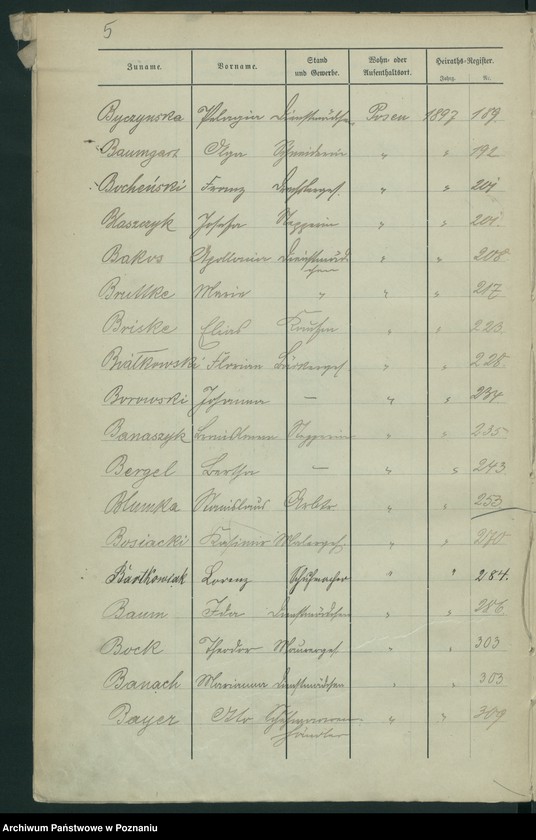 5
Zuname. Vorname. Stand und Gewerbe. Wohn- oder Aufenthaltsort. Heiraths-Register.
Jahrg. Nr.
Byczynska Pelagia Dienstmädchen Posen 1897 189.
Baumgart Olga Schneiderin " " 192
Bocheński Franz " " 201
Błaszczyk Josefa Stepperin " " 201.
Bakos Apollonia Dienstmädchen " " 208
Bruttke Maria " " " 217
Briske Elias Kaufm " " 223.
Białkowski Florian Bäckerges " " 228.
Borowski Johanna — " " 234
Banaszyk Stepperin " " 235
Bergel Bertha — " " 243
Blumka Stanislaus Arbtr " " 253
Bosiacki Kasimir Malerges " " 270
Bartkowiak Lorenz Schuhmacher " " 284.
Baum Ida Dienstmädchen " " 286
Bock Theodor Maurerges " " 303
Banach Marianna Dienstmädchen " " 303
Bayer Otto händler " " 309
Archiwum Państwowe w Poznaniu